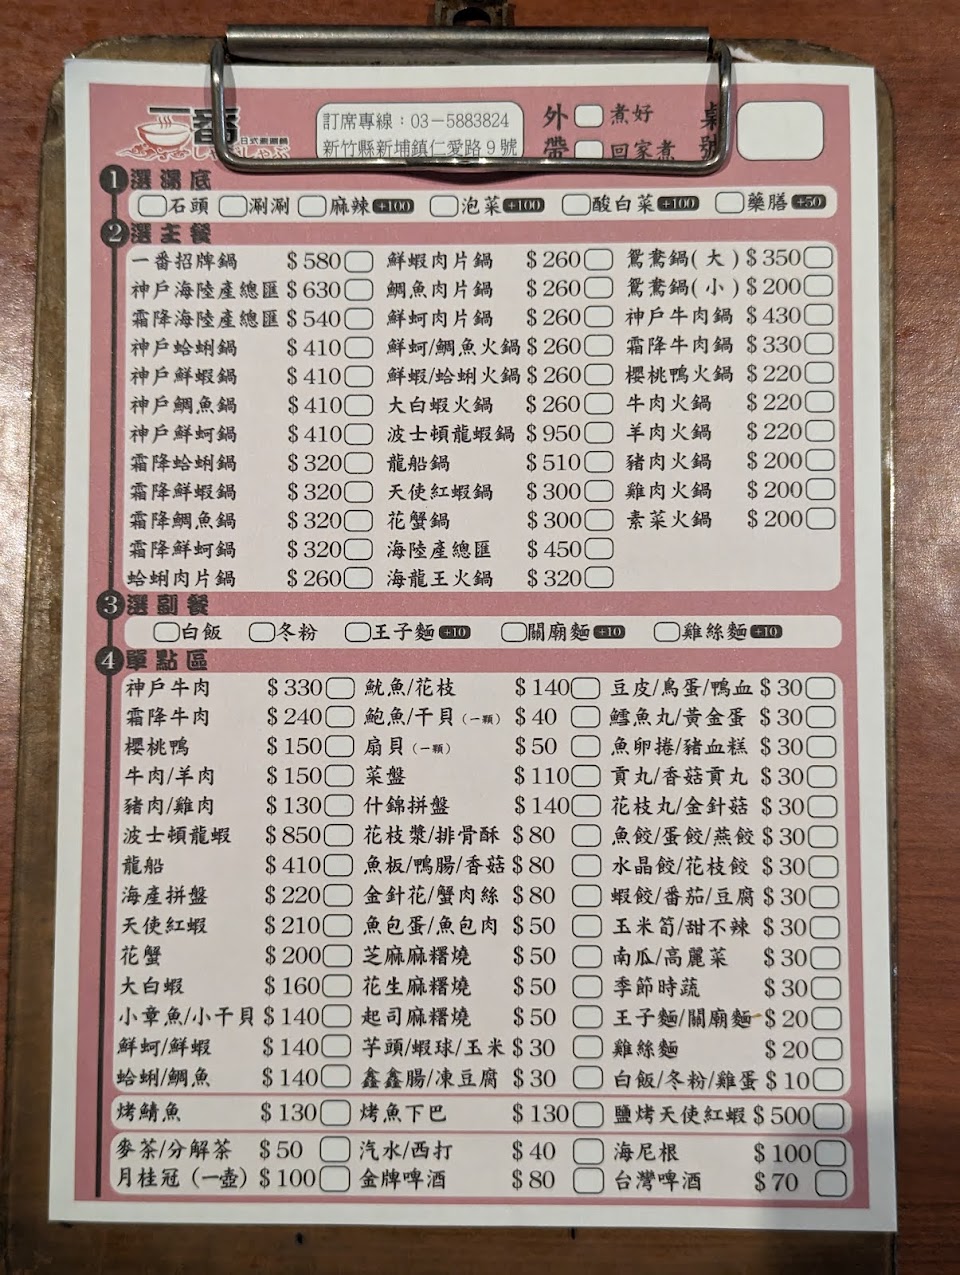 一番 日式涮涮鍋
しゃぶしゃぶ
訂席專線：03-5883824
新竹縣新埔鎮仁愛路9號
外帶 煮好 回家煮
桌號
1 選湯底
石頭 涮涮 麻辣+100 泡菜+100 酸白菜+100 藥膳+50
2 選主餐
一番招牌鍋 $580 鮮蝦肉片鍋 $260 鴛鴦鍋(大) $350
神戶海陸產總匯 $630 鯛魚肉片鍋 $260 鴛鴦鍋(小) $200
霜降海陸產總匯 $540 鮮蚵肉片鍋 $260 神戶牛肉鍋 $430
神戶蛤蜊鍋 $410 鮮蚵/鯛魚火鍋 $260 霜降牛肉鍋 $330
神戶鮮蝦鍋 $410 鮮蝦/蛤蜊火鍋 $260 櫻桃鴨火鍋 $220
神戶鯛魚鍋 $410 大白蝦火鍋 $260 牛肉火鍋 $220
神戶鮮蚵鍋 $410 波士頓龍蝦鍋 $950 羊肉火鍋 $220
霜降蛤蜊鍋 $320 龍船鍋 $510 豬肉火鍋 $200
霜降鮮蝦鍋 $320 天使紅蝦鍋 $300 雞肉火鍋 $200
霜降鯛魚鍋 $320 花蟹鍋 $300 素菜火鍋 $200
霜降鮮蚵鍋 $320 海陸產總匯 $450
蛤蜊肉片鍋 $260 海龍王火鍋 $320
3 選副餐
白飯 冬粉 王子麵+10 關廟麵+10 雞絲麵+10
4 單點區
神戶牛肉 $330 魷魚/花枝 $140 豆皮/鳥蛋/鴨血 $30
霜降牛肉 $240 鮑魚/干貝(一顆) $40 鱈魚丸/黃金蛋 $30
櫻桃鴨 $150 扇貝(一顆) $50 魚卵捲/豬血糕 $30
牛肉/羊肉 $150 菜盤 $110 貢丸/香菇貢丸 $30
豬肉/雞肉 $130 什錦拼盤 $140 花枝丸/金針菇 $30
波士頓龍蝦 $850 花枝漿/排骨酥 $80 魚餃/蛋餃/燕餃 $30
龍船 $410 魚板/鴨腸/香菇 $80 水晶餃/花枝餃 $30
海產拼盤 $220 金針花/蟹肉絲 $80 蝦餃/番茄/豆腐 $30
天使紅蝦 $210 魚包蛋/魚包肉 $50 玉米筍/甜不辣 $30
花蟹 $200 芝麻麻糬燒 $50 南瓜/高麗菜 $30
大白蝦 $160 花生麻糬燒 $50 季節時蔬 $30
小章魚/小干貝 $140 起司麻糬燒 $50 王子麵/關廟麵 $20
鮮蚵/鮮蝦 $140 芋頭/蝦球/玉米 $30 雞絲麵 $20
蛤蜊/鯛魚 $140 鑫鑫腸/凍豆腐 $30 白飯/冬粉/雞蛋 $10
烤鯖魚 $130 烤魚下巴 $130 鹽烤天使紅蝦 $500
麥茶/分解茶 $50 汽水/西打 $40 海尼根 $100
月桂冠(一壺) $100 金牌啤酒 $80 台灣啤酒 $70